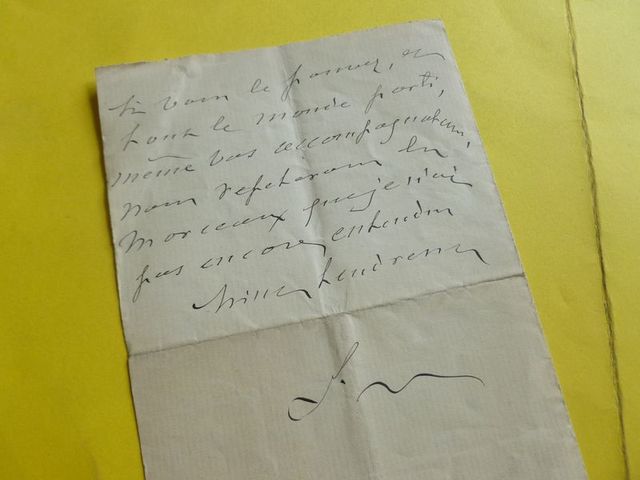 Si vous le pouvez, et
tout le monde parti,
même vos accompagnateurs,
nous répéterons les
morceaux que je n'ai
pas encore entendus
Mille tendresses
S.